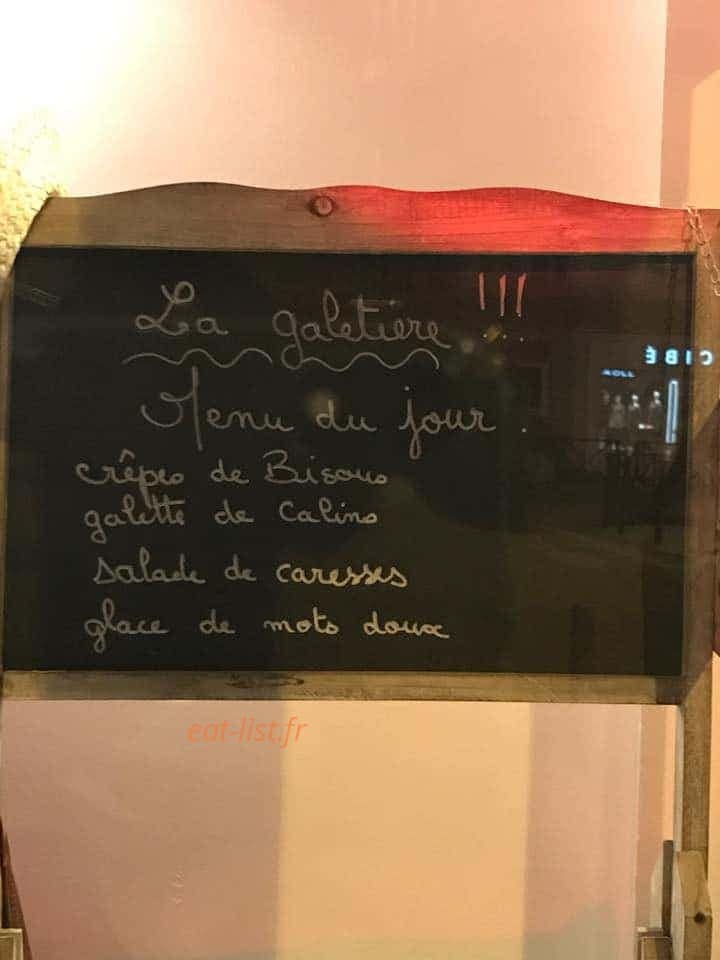 La galetiere !!!
Menu du jour .
crêpes de Bisous
galette de Calins
salade de caresses
glace de mots doux
CIBÉ
eat-list.fr